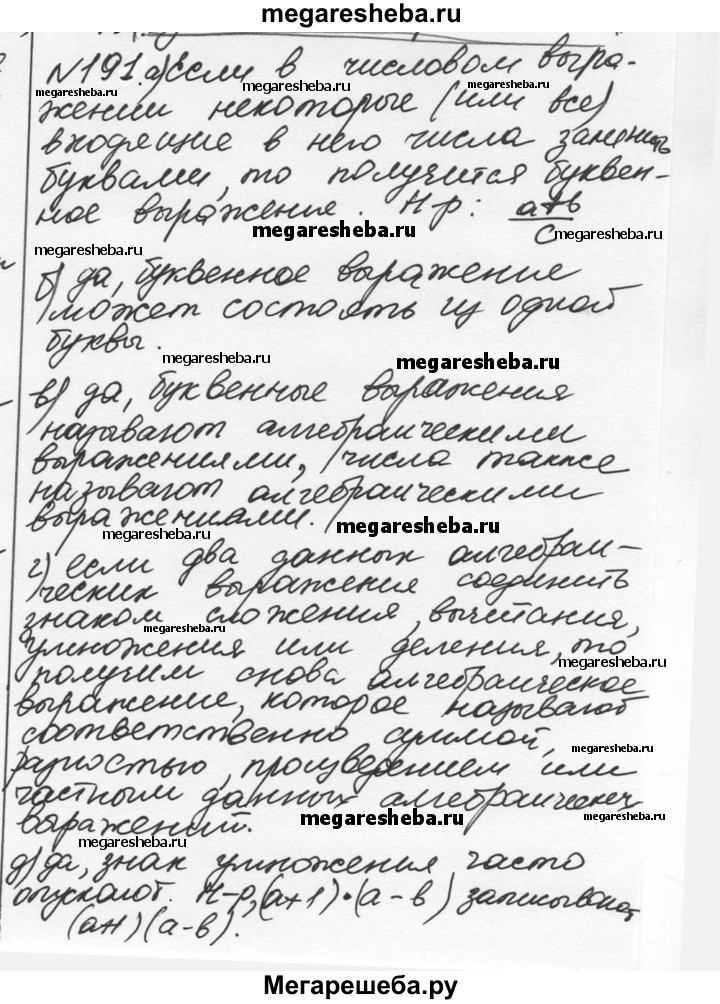 megaresheba.ru
№191. а) Если в числовом выра-
megaresheba.ru
megaresheba.ru
megaresheba.ru
жении некоторые (или все)
входящие в него числа заменить
буквами, то получится буквен-
ное выражение. Н-р: a+b
c
megaresheba.ru
megaresheba.ru
megaresheba.ru
б) да, буквенное выражение
может состоять из одной
буквы.
megaresheba.ru
megaresheba.ru
в) да, буквенные выражения
называют алгебраическими
выражениями, числа также
называют алгебраическими
выражениями.
megaresheba.ru
megaresheba.ru
г) если два данных алгебраи-
ческих выражения соединить
знаком сложения, вычитания,
megaresheba.ru
умножения или деления, то
megaresheba.ru
получим снова алгебраическое
выражение, которое называют
соответственно суммой,
megaresheba.ru
разностью, произведением или
частным данных алгебраических
выражений.
megaresheba.ru
megaresheba.ru
megaresheba.ru
д) да, знак умножения часто
опускают. Н-р, (a+1)·(a-b) записывают
(a+1)(a-b).
Мегарешеба.ру